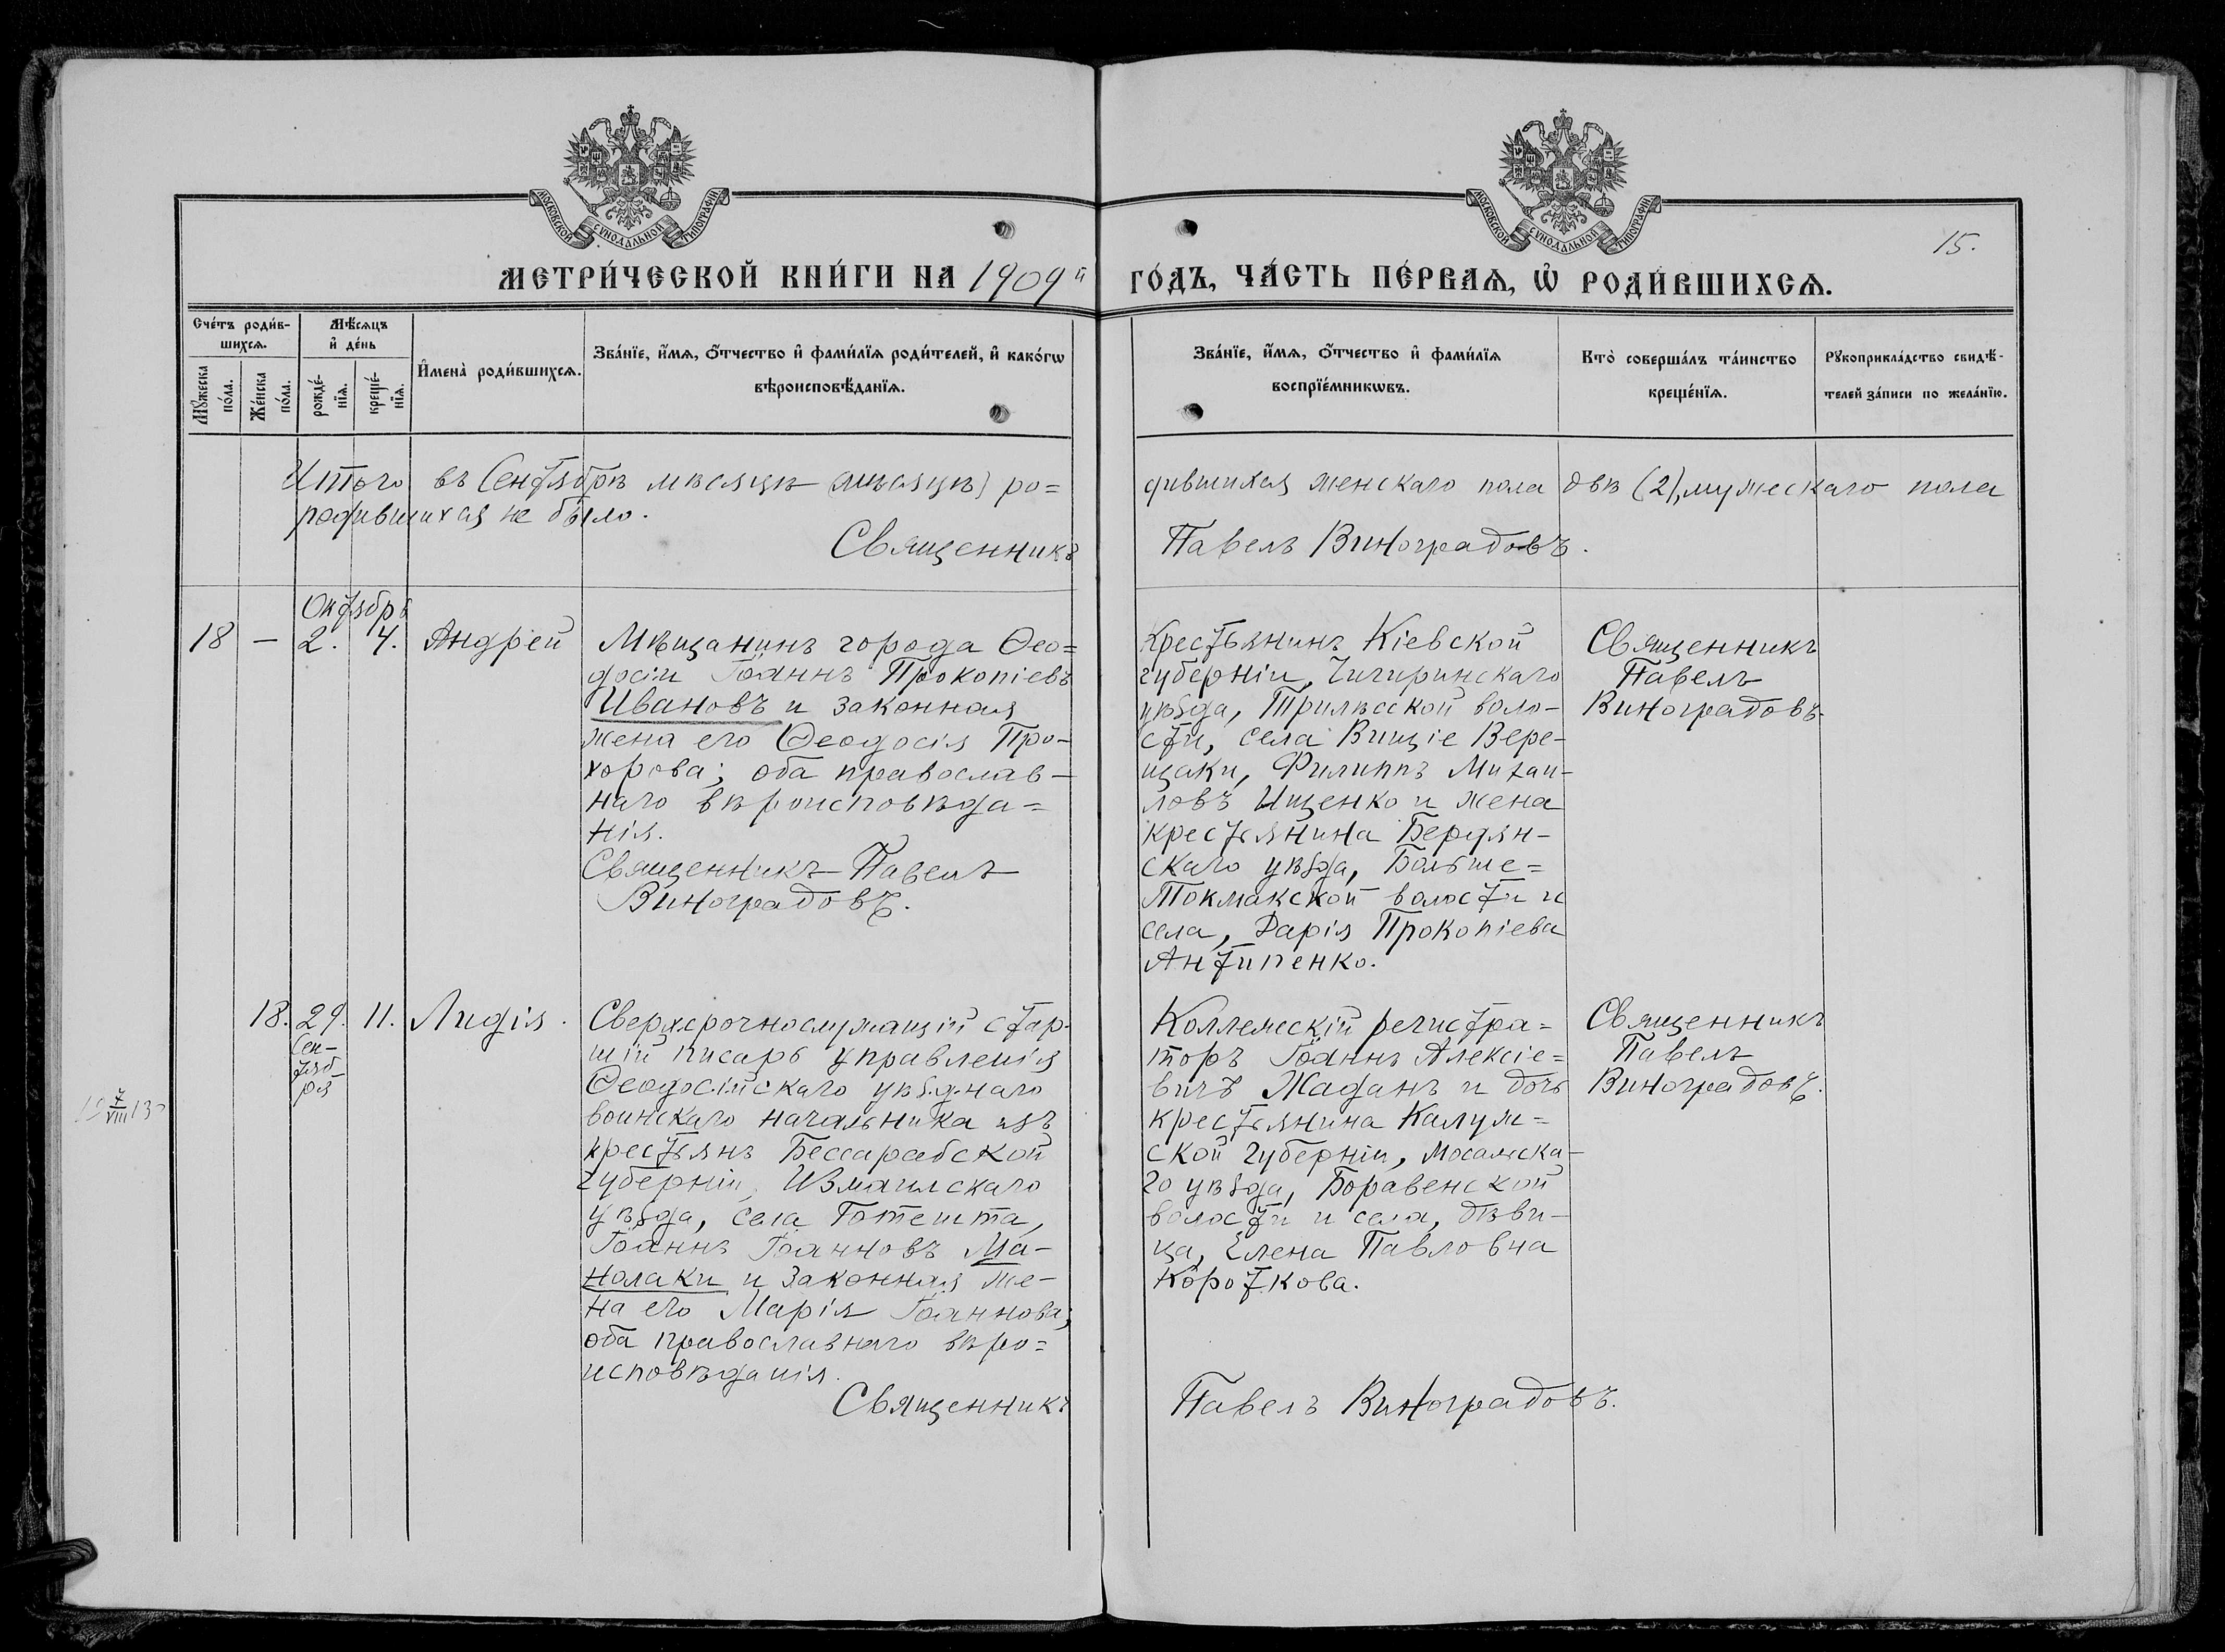 МОСКОВСКОЙ СѴНОДАЛЬНОЙ ТИПОГРАФІИ
МОСКОВСКОЙ СѴНОДАЛЬНОЙ ТИПОГРАФІИ
15.
МЕТРИ́ЧЕСКОЙ КНИ́ГИ НА 1909й ГО́ДЪ, ЧА́СТЬ ПЕ́РВАѦ, Ѡ҆ РОДИ́ВШИХСѦ.
Сче́тъ роди́в-
шихсѧ.
Мѣ́сѧцъ
и҆ де́нь
Мꙋ́жеска
по́ла.
Же́нска
по́ла.
рожде́-
нїѧ.
креще́-
нїѧ.
И҆мена̀ роди́вшихсѧ.
Зва́нїе, и҆́мѧ, ѻ҆́тчество и҆ фами́лїѧ роди́телей, и҆ како́гѡ
вѣроисповѣ́данїѧ.
Зва́нїе, и҆́мѧ, ѻ҆́тчество и҆ фами́лїѧ
воспрїе́мникѡвъ.
Кто̀ соверша́лъ та́инство
креще́нїѧ.
Рꙋкоприкла́дство свидѣ́-
телей за́писи по жела́нїю.
Итого въ Сентябрѣ мѣсяцѣ (мѣсяцѣ) ро=
дившихся женскаго пола двѣ (2), мужескаго пола
родившихся не было.
Священникъ Павелъ Виноградовъ.
Октябрь
18 — 2. 4. Андрей
Мѣщанинъ города Ѳео=
досіи Іоаннъ Прокопіевъ
Ивановъ и законная
жена его Ѳеодосія Про-
хорова; оба православ-
наго вѣроисповѣда=
нія.
Священникъ Павелъ
Виноградовъ.
Крестьянинъ Кіевской
губерніи, Чигиринскаго
уѣзда, Трилѣсской воло-
сти, села Вищіе Вере-
щаки, Филиппъ Михаи-
ловъ Ищенко и жена
крестьянина Бердян-
скаго уѣзда, Больше=
Токмакской волости и
села, Дарія Прокопіева
Антипенко.
Священникъ
Павелъ
Виноградовъ.
18. 29. 11. Лидія.
Сен-
тяб-
ря
VIII
Сверхсрочнослужащій стар-
шій писарь управленія
Ѳеодосійскаго уѣзднаго
воинскаго начальника изъ
крестьянъ Бессарабской
губерніи, Измаилскаго
уѣзда, села Готешта,
Іоаннъ Іоанновъ Ма-
нолаки и законная же-
на его Марія Іоаннова;
оба православнаго вѣро=
исповѣданія.
Коллежскій регистра=
торъ Іоаннъ Алексіе=
вичъ Жаданъ и дочь
крестьянина Калуж=
ской губерніи, Мосальска-
го уѣзда, Боравенской
волости и села, дѣви-
ца, Елена Павловна
Короткова.
Священникъ
Павелъ
Виноградовъ.
Священникъ Павелъ Виноградовъ.